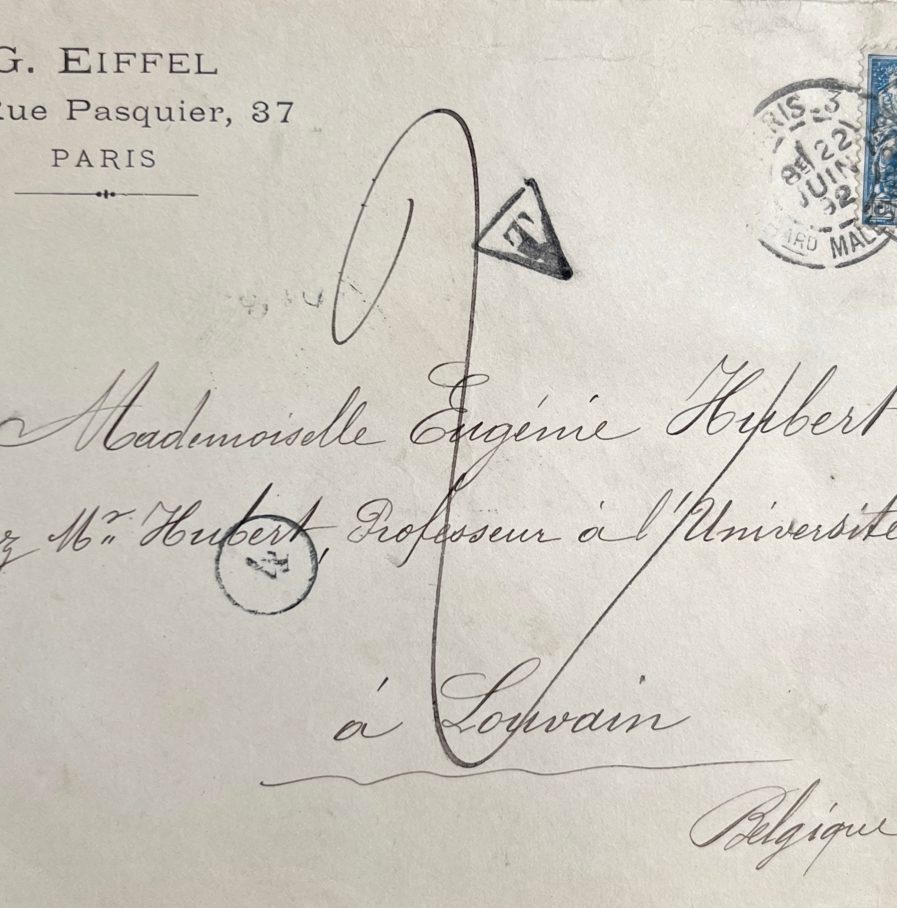 G. EIFFEL
Rue Pasquier, 37
PARIS
PARIS-3
8E/ 22
JUIN
92
ARD MALE
T
Mademoiselle Eugénie Hubert
z Mr. Hubert, Professeur à l'Université
4
à Louvain
Belgique